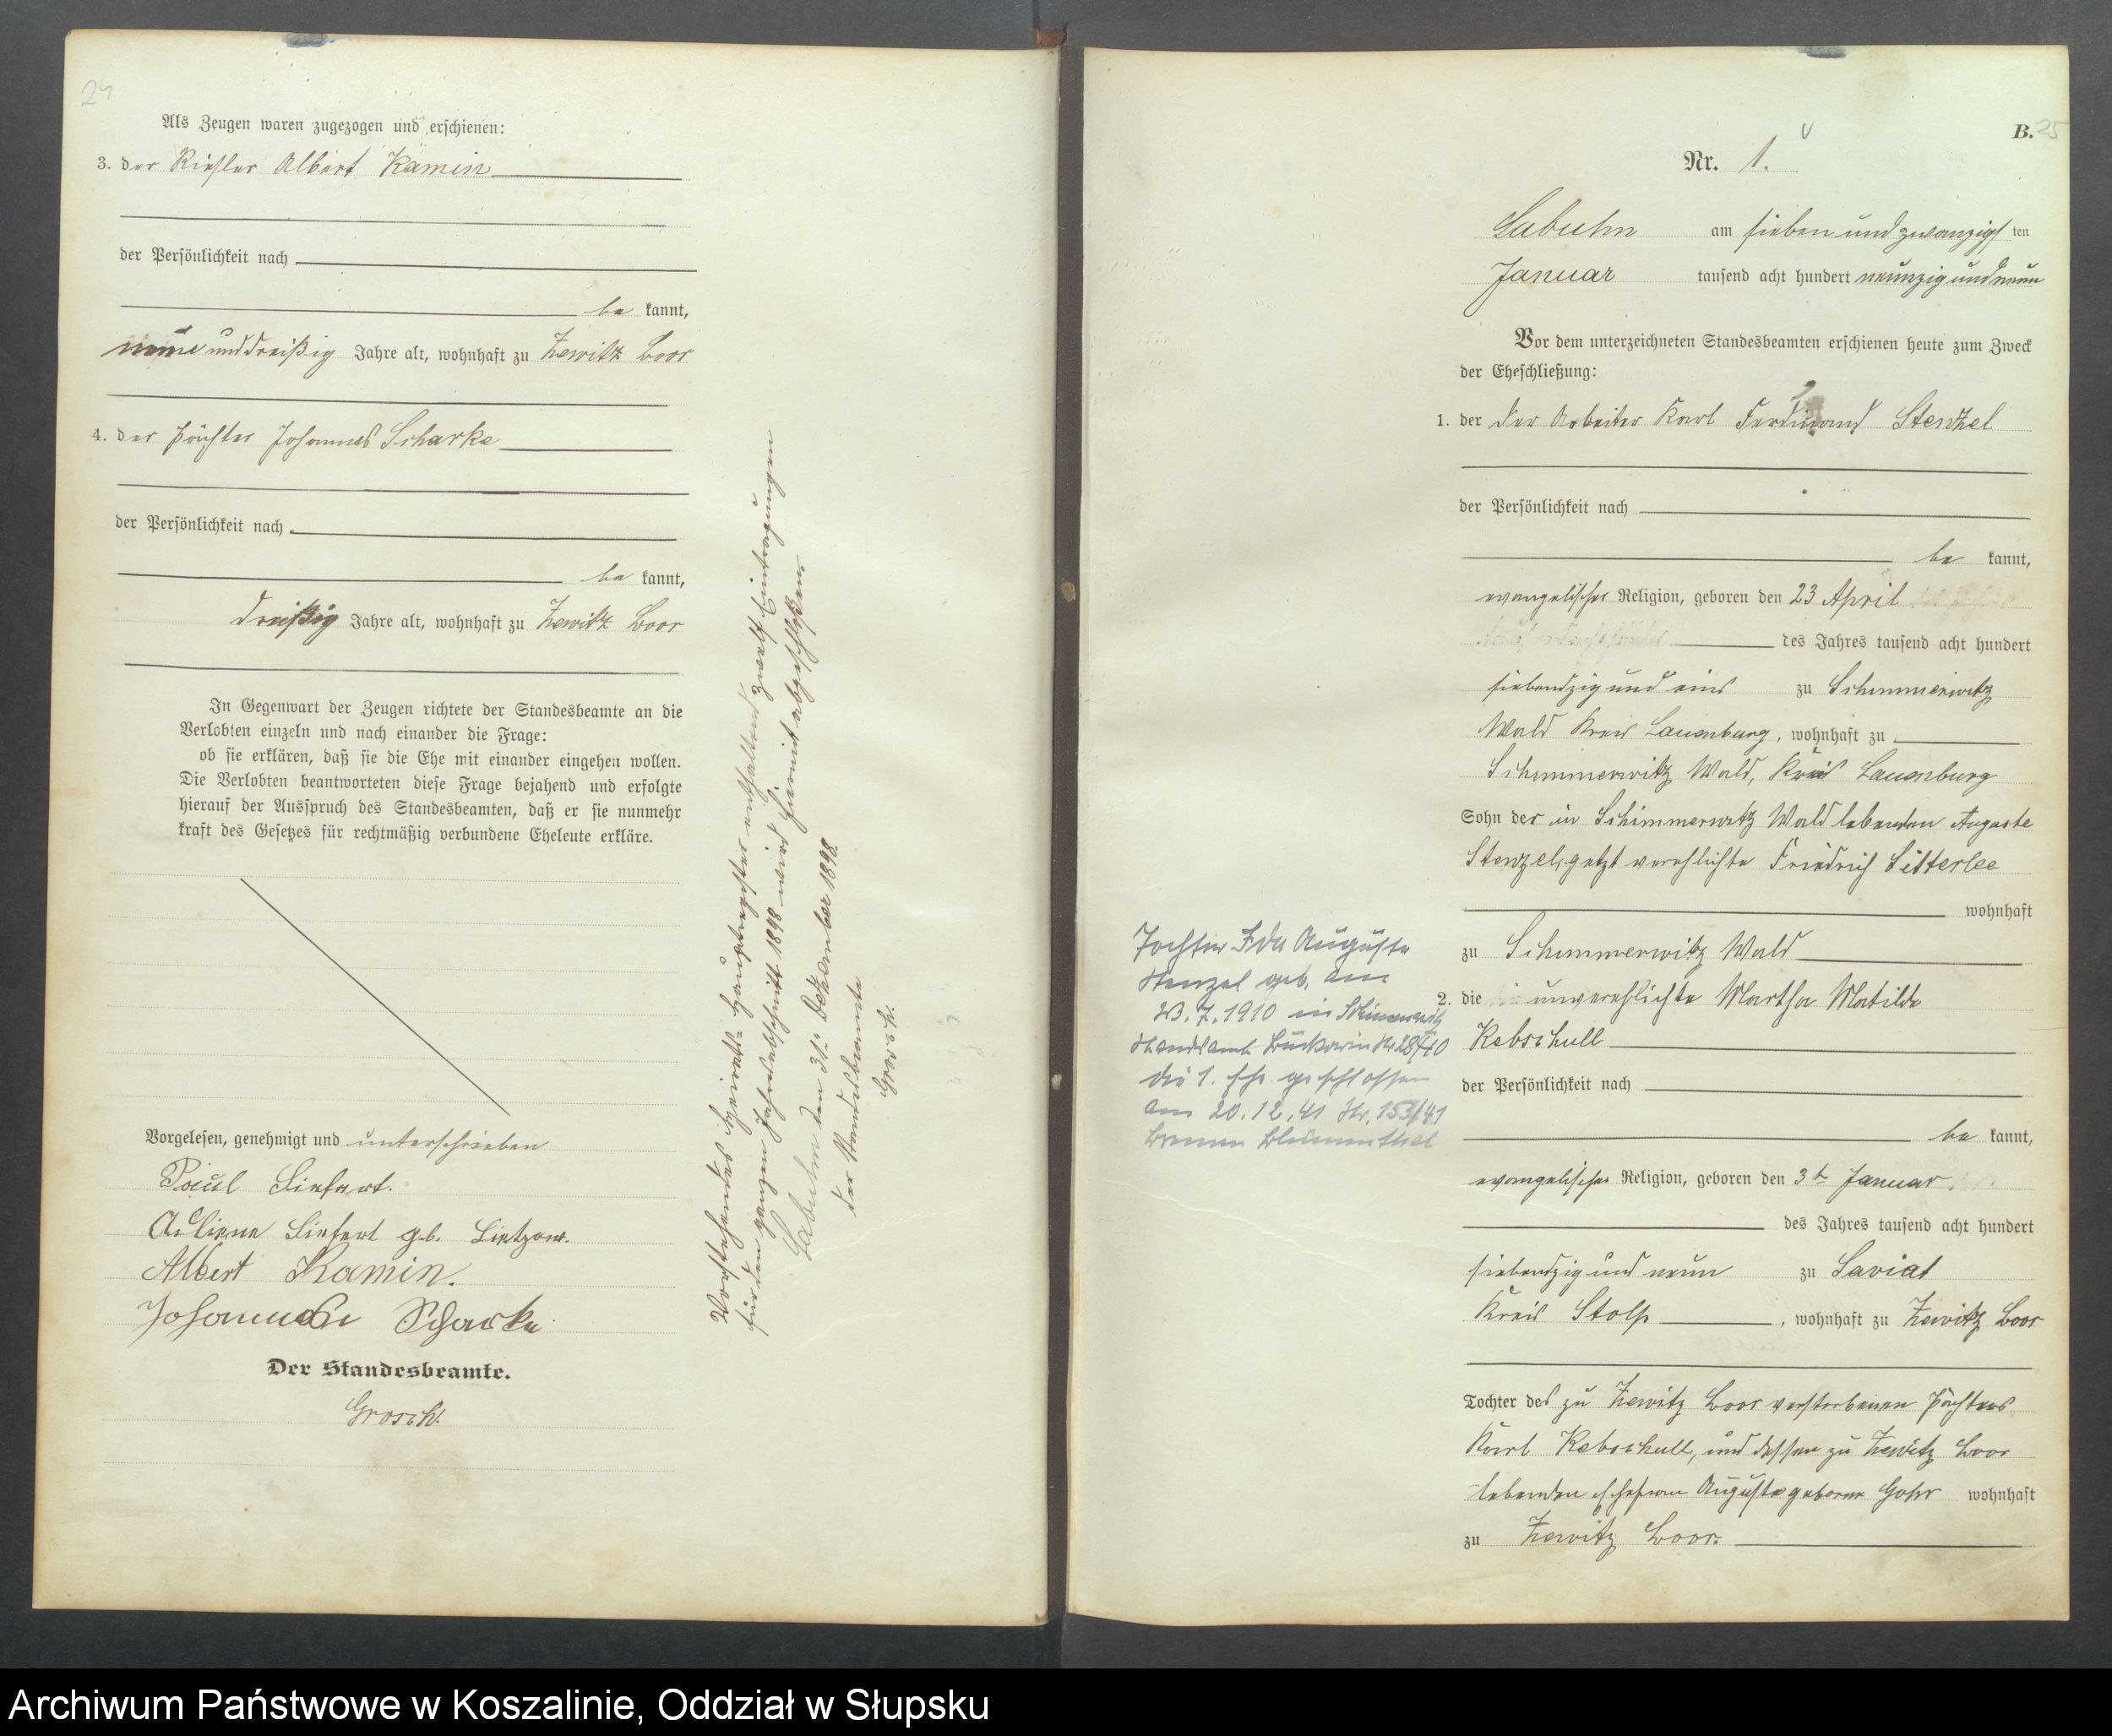 24
Als Zeugen waren zugezogen und erschienen:
3. der Albert Kamin
der Persönlichkeit nach
be kannt,
neun und dreißig Jahre alt, wohnhaft zu Zewitz Boor
4. der Pächter Johannes Scharke
der Persönlichkeit nach
be kannt,
dreißig Jahre alt, wohnhaft zu Zewitz Boor
In Gegenwart der Zeugen richtete der Standesbeamte an die
Verlobten einzeln und nach einander die Frage:
ob sie erklären, daß sie die Ehe mit einander eingehen wollen.
Die Verlobten beantworteten diese Frage bejahend und erfolgte
hierauf der Ausspruch des Standesbeamten, daß er sie nunmehr
kraft des Gesetzes für rechtmäßig verbundene Eheleute erkläre.
Vorgelesen, genehmigt und unterschrieben
Paul Liefert.
Liefert geb. Lietzow.
Albert Kamin.
Johannes Scharke
Der Standesbeamte.
Grosch.
Vorstehendes Heirats-Hauptregister enthaltend zwölf Eintragungen
für den ganzen Jahresabschnitt 1898 wird hiermit abgeschlossen
Labuhn den 31. Dezember 1898.
Der Standesbeamte
Grosch.
B. 25
Nr. 1.
Labuhn am sieben und zwanzigsten
Januar tausend acht hundert neunzig und neun
Vor dem unterzeichneten Standesbeamten erschienen heute zum Zweck
der Eheschließung:
1. der der Arbeiter Karl Ferdinand Stenzel
der Persönlichkeit nach
be kannt,
evangelischer Religion, geboren den 23 April
des Jahres tausend acht hundert
siebendzig und eins zu Schimmerwitz
Wald Kreis Lauenburg, wohnhaft zu
Schimmerwitz Wald, Kreis Lauenburg
Sohn der in Schimmerwitz Wald lebenden Auguste
Stenzel, getzt verehlichte Friedrich
wohnhaft
zu Schimmerwitz Wald
2. die unverehlichte Martha Matilde
Rebschull
der Persönlichkeit nach
be kannt,
evangelischer Religion, geboren den 3t Januar
des Jahres tausend acht hundert
siebendzig und neun zu Saviat
Kreis Stolp, wohnhaft zu Zewitz Boor
Tochter des zu Zewitz Boor verstorbenen Pächters
Karl Rebschull, und dessen zu Zewitz Boor
lebenden Ehefrau Auguste geborne Gohr wohnhaft
zu Zewitz Boor.
Tochter Ida Auguste
Stenzel geb. am
23.7.1910 in Schimmerwitz
Standesamt Bukowin Nr 28/10
die 1. Ehe geschlossen
am 20.12.41 Nr. 153/41
Bremen Blumenthal
Archiwum Państwowe w Koszalinie, Oddział w Słupsku